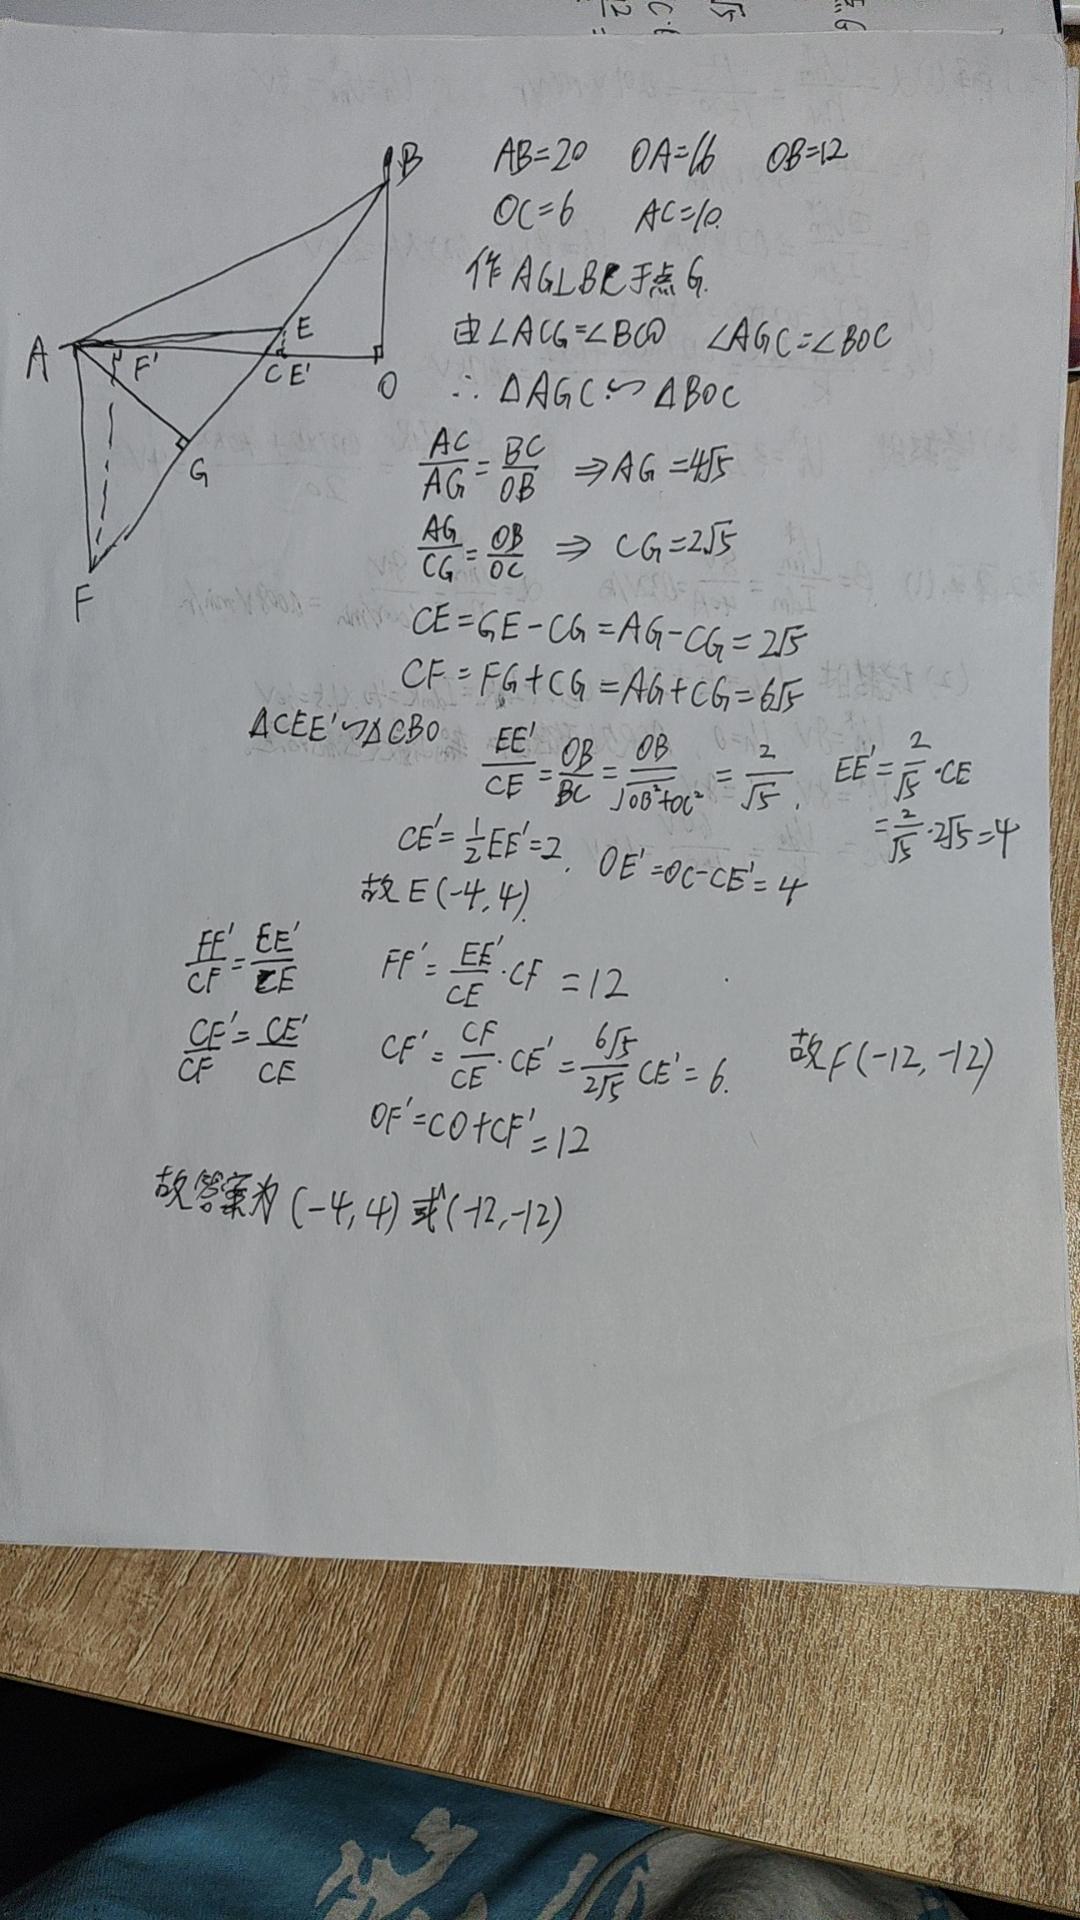 B
AB=20 OA=16 OB=12
OC=6 AC=10.
作AG⊥BC于点G.
由∠ACG=∠BCO ∠AGC=∠BOC
∴ △AGC∽△BOC
A F' C E' E O
G
F
AC/AG=BC/OB ⇒AG=4√5
AG/CG=OB/OC ⇒ CG=2√5
CE=GE-CG=AG-CG=2√5
CF=FG+CG=AG+CG=6√5
△CEE'∽△CBO EE'/CE=OB/BC=OB/√OB²+OC²=2/√5. EE'=2/√5·CE
=2/√5·2√5=4
CE'=1/2EE'=2. OE'=OC-CE'=4
故E(-4,4).
FF'/CF=EE'/CE FF'=EE'/CE·CF=12
CF'/CF=CE'/CE CF'=CF/CE·CE'=6√5/2√5CE'=6. 故F(-12,-12)
OF'=CO+CF'=12
故答案为(-4,4)或(-12,-12)